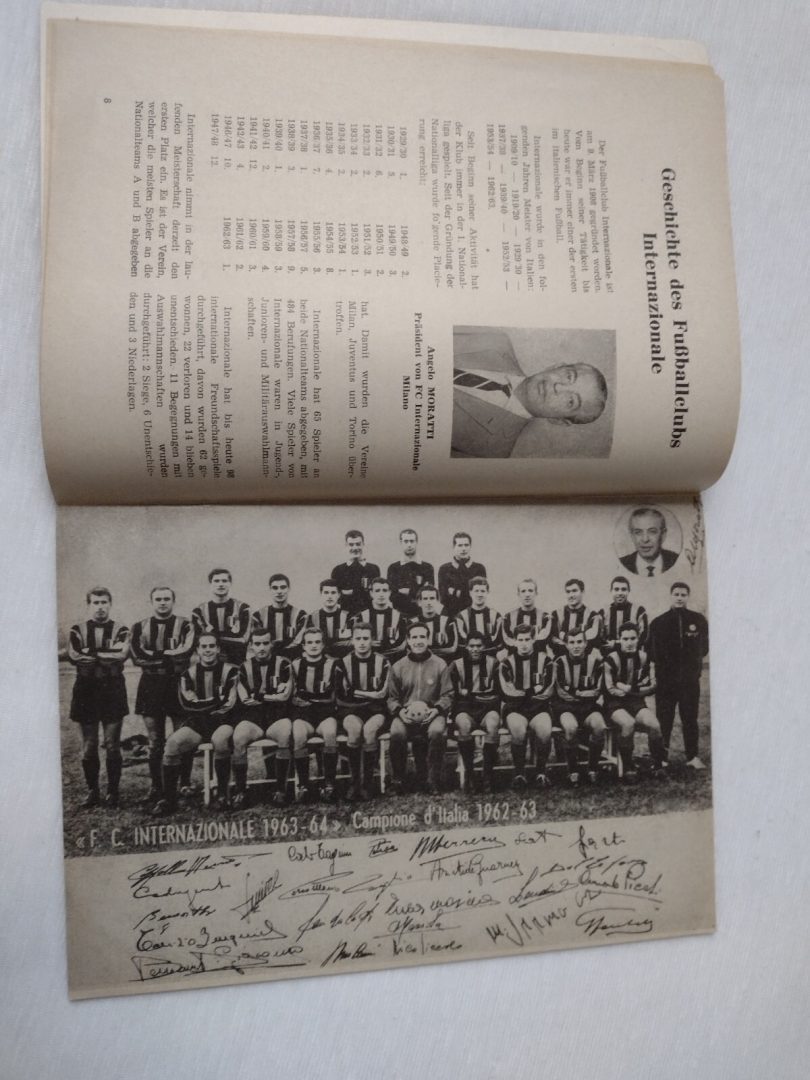 Geschichte des Fußballclubs
Internazionale
Der Fußballclub Internazionale ist
am 9. März 1908 gegründet worden.
Vom Beginn seiner Tätigkeit bis
heute war er immer einer der ersten
im italienischen Fußball.
Internazionale wurde in den fol-
genden Jahren Meister von Italien:
1909/10 — 1919/20 — 1929/30 —
1937/38 — 1939/40 — 1952/53 —
1953/54 — 1962/63.
*
Seit Beginn seiner Aktivität hat
der Klub immer in der 1. National-
liga gespielt. Seit der Gründung der
Nationalliga wurde folgende Placie-
rung erreicht:
1929/30 1.
1930/31 5.
1931/32 6.
1932/33 2.
1933/34 2.
1934/35 2.
1935/36 4.
1936/37 7.
1937/38 1.
1938/39 3.
1939/40 1.
1940/41 2.
1941/42 12.
1942/43 4.
1946/47 10.
1947/48 12.
1948/49 2.
1949/50 3.
1950/51 2.
1951/52 3.
1952/53 1.
1953/54 1.
1954/55 8.
1955/56 3.
1956/57 5.
1957/58 9.
1958/59 3.
1959/60 4.
1960/61 3.
1961/62 2.
1962/63 1.
Internazionale nimmt in der lau-
fenden Meisterschaft derzeit den
ersten Platz ein. Es ist der Verein,
welcher die meisten Spieler an die
Nationalteams A und B abgegeben
8
Angelo MORATTI
Präsident von FC Internazionale
Milano
hat. Damit wurden die Vereine
Milan, Juventus und Torino über-
troffen.
Internazionale hat 65 Spieler an
beide Nationalteams abgegeben, mit
484 Berufungen. Viele Spieler von
Internazionale waren in Jugend-,
Junioren- und Militärauswahlmann-
schaften.
Internazionale hat bis heute 98
internationale Freundschaftsspiele
durchgeführt, davon wurden 62 ge-
wonnen, 22 verloren und 14 blieben
unentschieden. 11 Begegnungen mit
Auswahlmannschaften wurden
durchgeführt: 2 Siege, 6 Unentschie-
den und 3 Niederlagen.
« F. C. INTERNAZIONALE 1963-64 » Campione d'Italia 1962-63